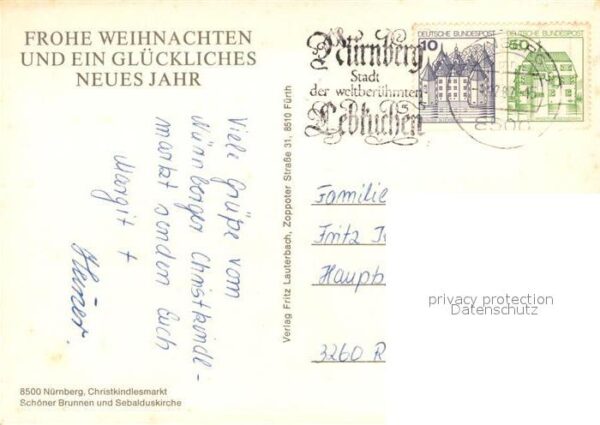 FROHE WEIHNACHTEN
UND EIN GLÜCKLICHES
NEUES JAHR
Viele Grüße vom
Nürnberger Christkindl-
markt senden Euch
Margit +
Heiner.
8500 Nürnberg, Christkindlesmarkt
Schöner Brunnen und Sebalduskirche
Verlag Fritz Lauterbach, Zoppoter Straße 31, 8510 Fürth
Nürnberg
Stadt
der weltberühmten
Lebkuchen
DEUTSCHE BUNDESPOST
10
DEUTSCHE BUNDESPOST
50
8500
Familie
Fritz
Haupt
3260 R
privacy protection
Datenschutz